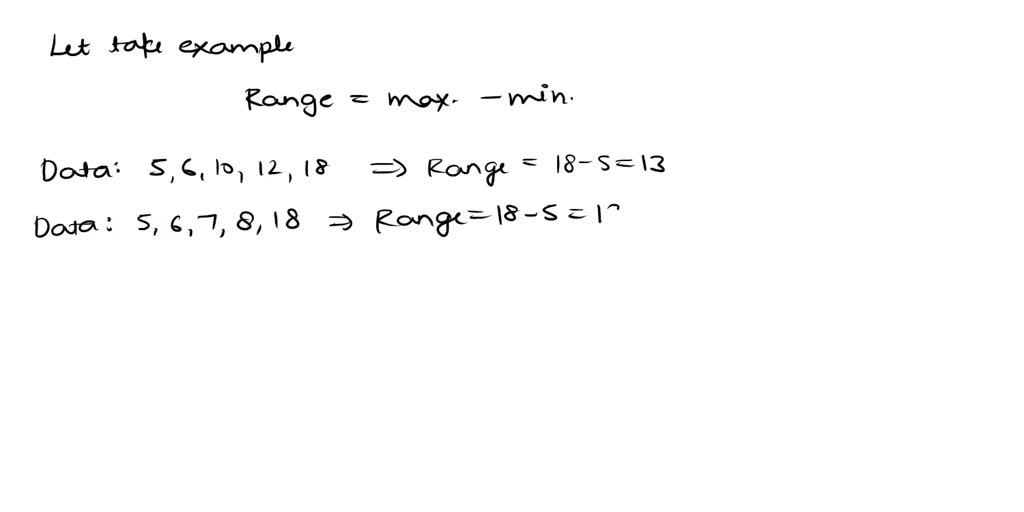 Let take example
Range = max. - min.
Data: 5, 6, 10, 12, 18 ⇒ Range = 18-5=13
Data: 5, 6, 7, 8, 18 ⇒ Range=18-5=1